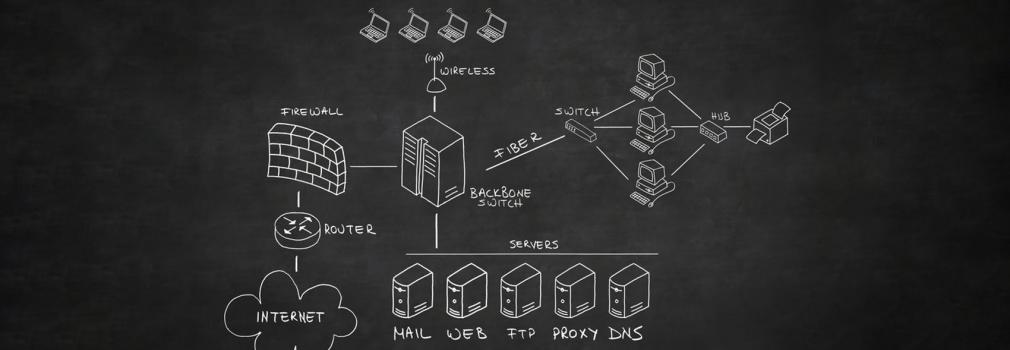 WIRELESS
FIREWALL
SWITCH
HUB
FIBER
BACKBONE
SWITCH
ROUTER
SERVERS
INTERNET
MAIL WEB FTP PROXY DNS